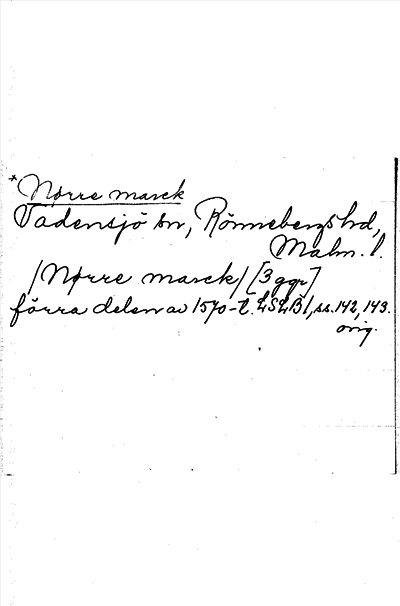 *Nørre marck
Vadensjö sn, Rönnebergs hd,
Malm. l.
/Nørre marck/ [3 ggr]
förra delen av 1570-t. LSLB 1, ss. 142, 143.
orig.